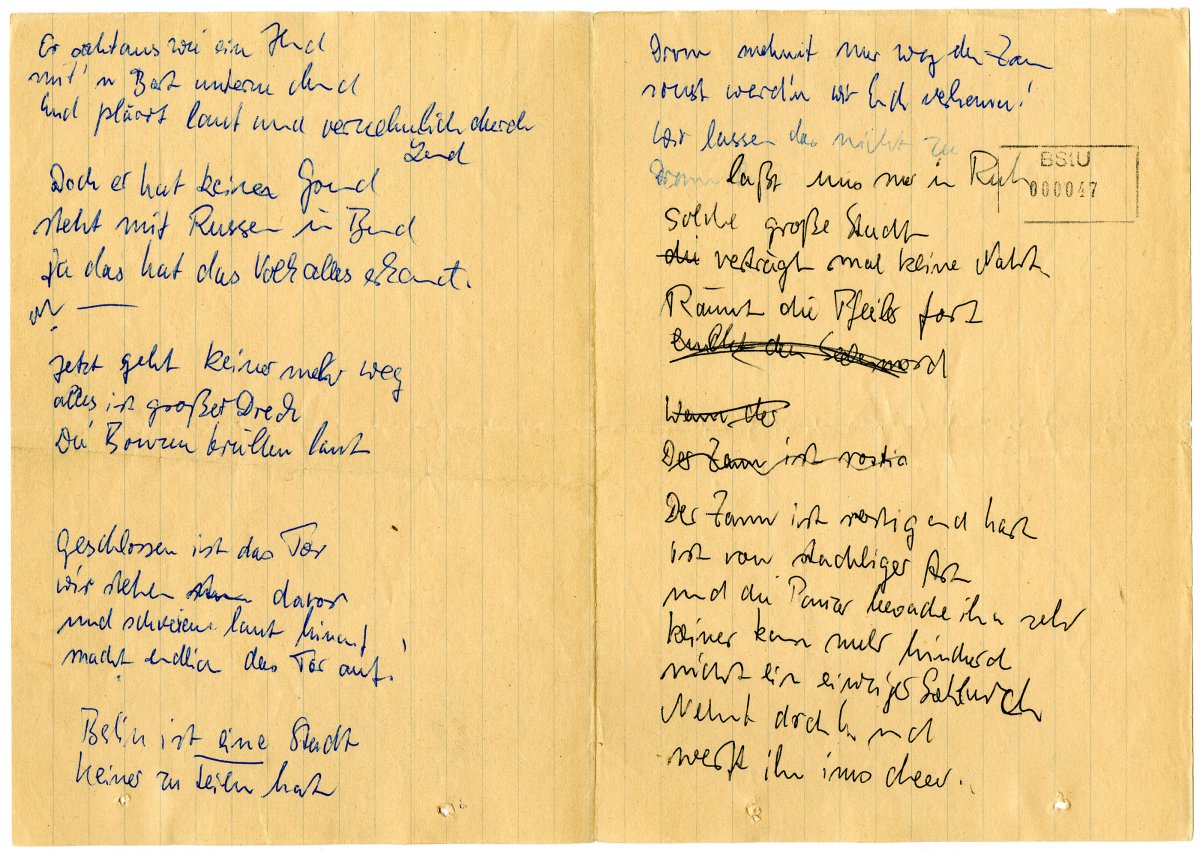 Er sieht aus wie ein Hund
mit'n Bart unterm Mund
Und plärrt laut und vernehmlich durch
Land
Doch er hat keinen Grund
steht mit Russen in Bund
Ja das hat das Volk alles erkannt.
Jetzt geht keiner mehr weg
alles ist großer Dreck
Die Bonzen brüllen laut
Geschlossen ist das Tor
wir stehen davor
und schreien laut hinauf
macht endlich das Tor auf!
Berlin ist eine Stadt
keiner zu teilen hat
Drom nehmt nur weg den Zaun
sonst werd'n wir Euch verhauen!
wir lassen das nicht zu
Drom laßt uns nur in Ruh
BStU
000047
Solche große Stadt
die verträgt mal keine Naht
Räumt die Pfeiler fort
den
Wenn der
Der Zaun ist rostig
Der Zaun ist rostig und hart
ist von stachliger Art
und die Panzer bewache ihn sehr
keiner kann mehr hindurch
nicht ein einziger
Nehmt doch ihn und
werft ihn ins Meer.